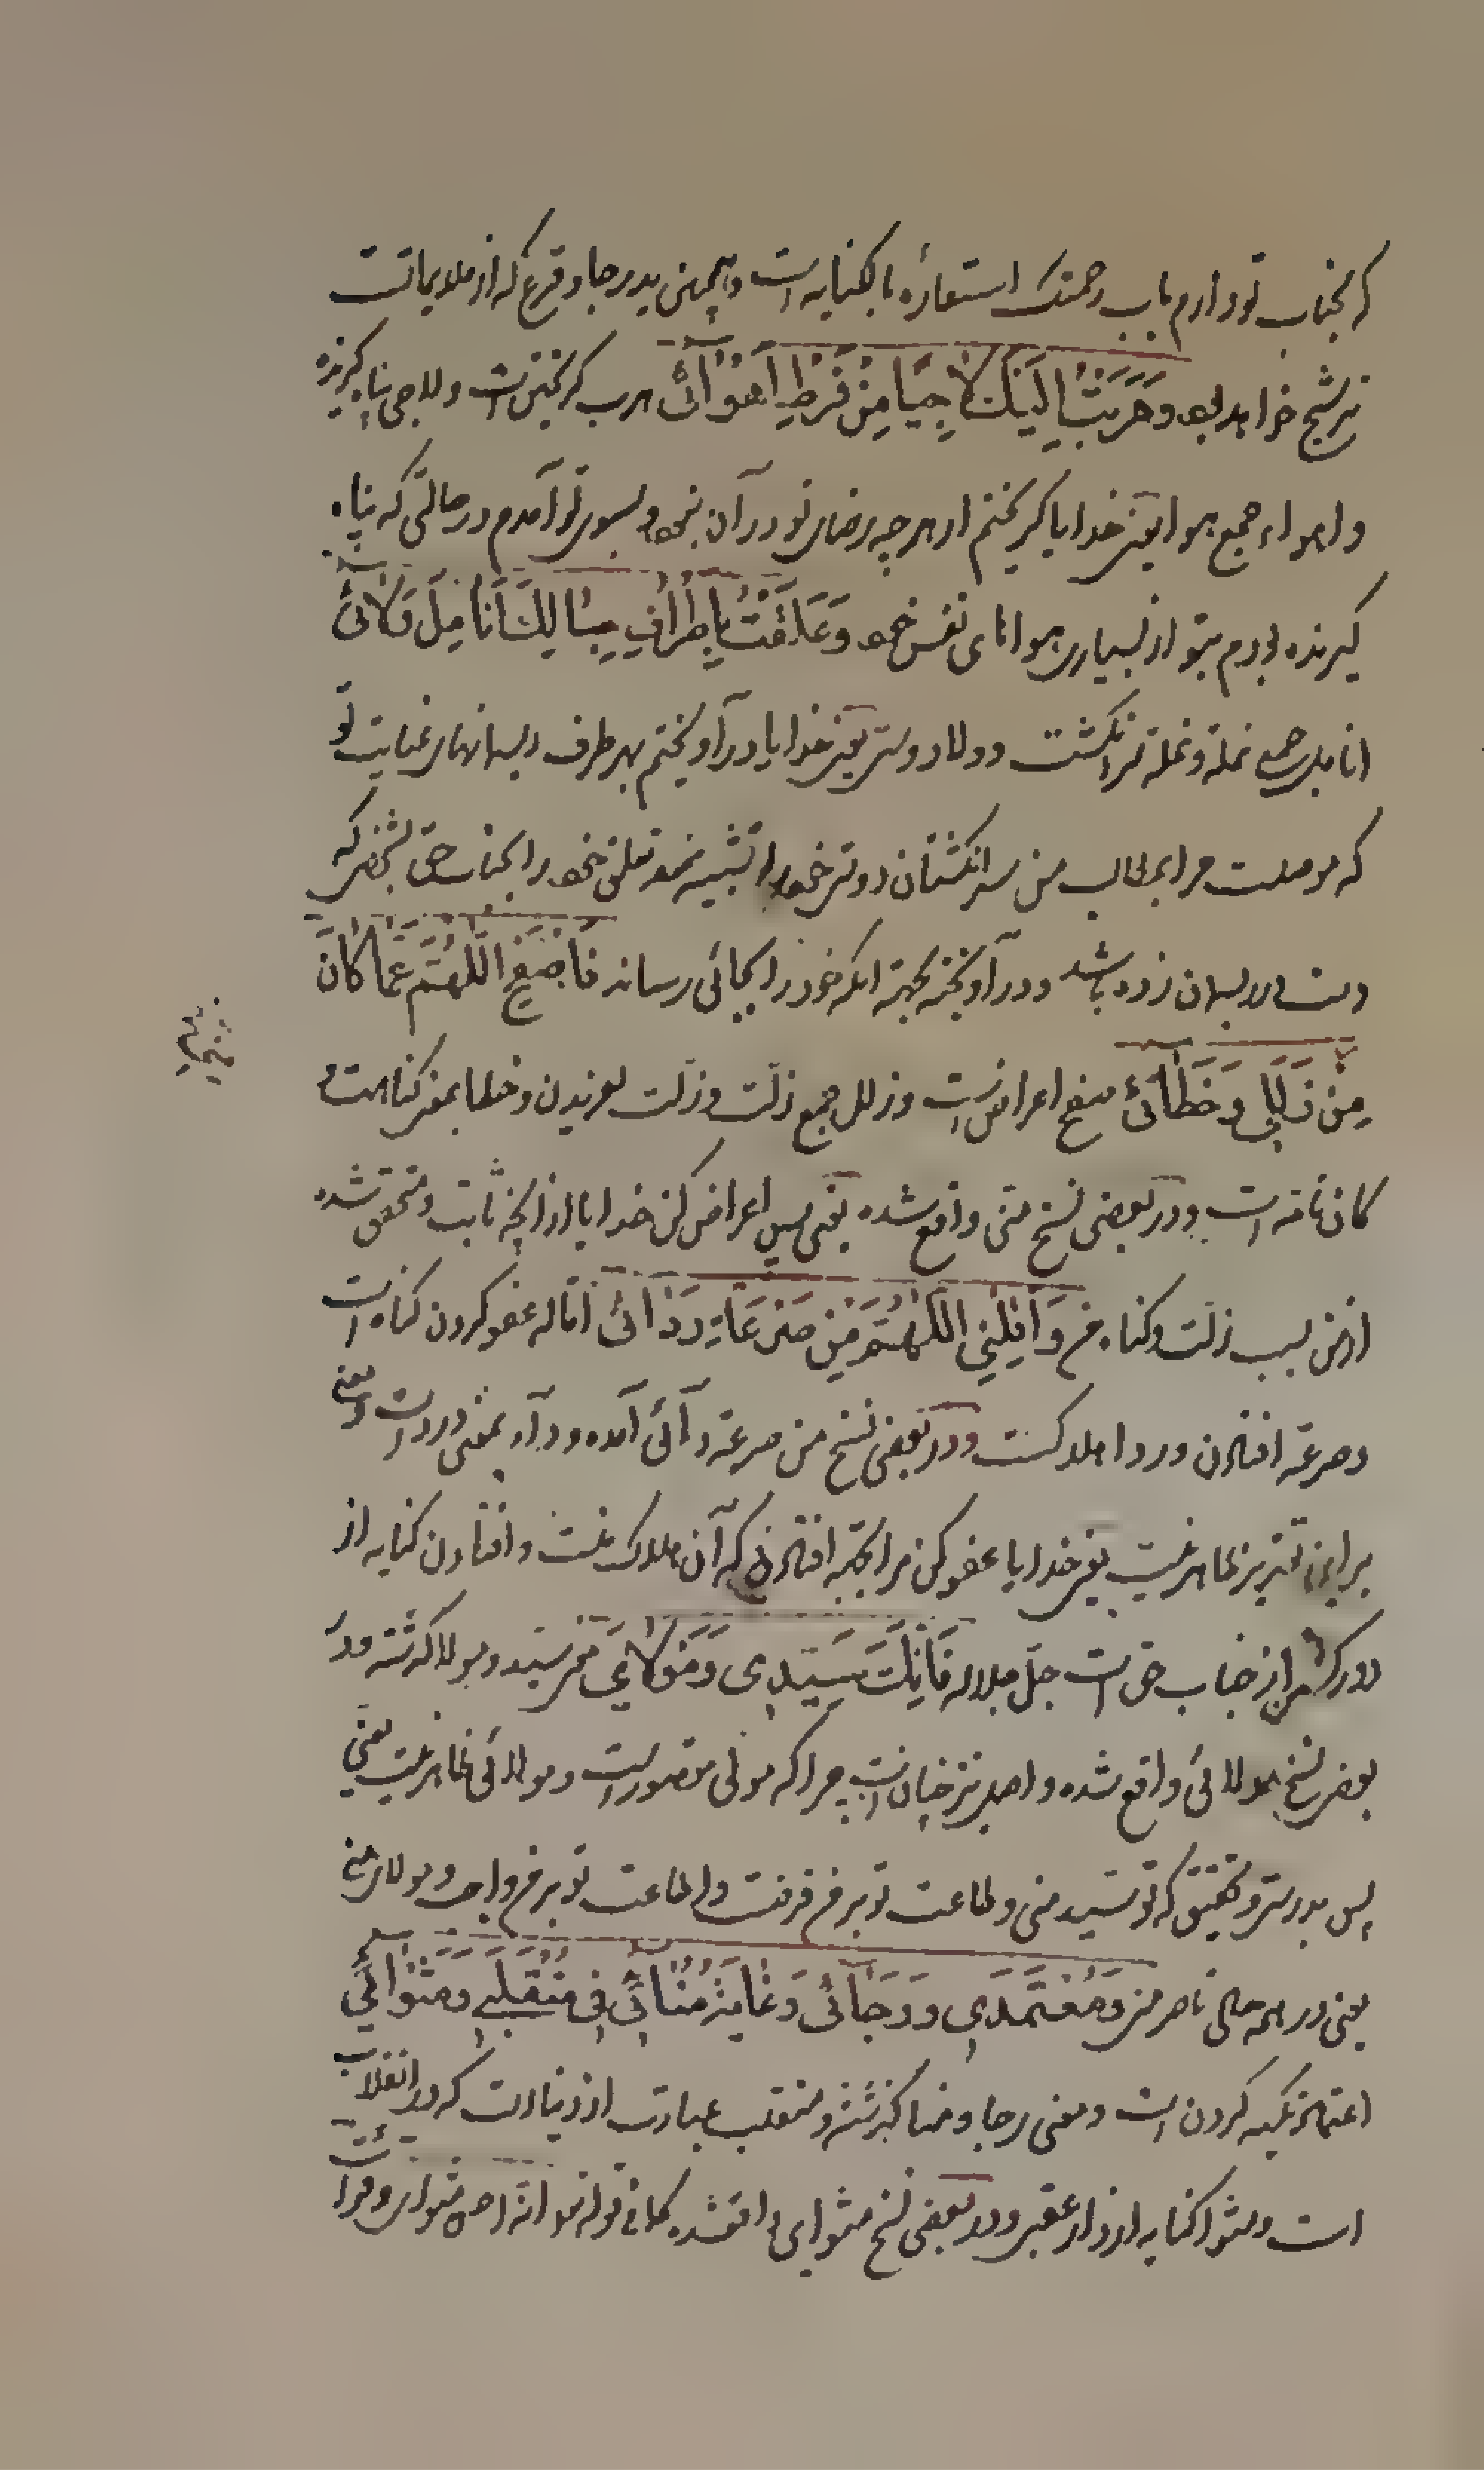 که بجناب تو دارم باب رحمتک استعارهٔ بالکنایه است و همچنین ید رجا و قرع که از ملایماتست
ترشیح خواهد بود وَهَرَبْتُ اِلَیْکَ لاجِیًا مِنْ فَرْطِ اَهْوَآئی هرب گریختن است و لاجی پناه گیرنده
و اهواء جمع هوا یعنی خدایا گریختم از هر چه رضای تو در آن نبود و بسوی تو آمدم در حالتی که پناه
گیرنده بودم بتو از بسیاری هواهای نفس خود وَعَلَّقْتُ بِاَطْرافِ حِبالِکَ اَنامِلَ وَلائی
انامل جمع نملة و نملة سر انگشت و ولا دوستی یعنی خدایا درآویختم بهر طرف ریسمانهای عنایت تو
که موصلست مرا بمطالب من سر انگشتان دوستی خود را تشبیه نموده تعلق خود را بجناب حق بشخصی که
دست در ریسمان زده باشد و درآویخته بجهة انکه خود را بجائی رساند فَاصْفَحِ اللّهُمَّ عَمّا کانَ
مِنْ زَلَلی وَخَطآئی صفح اعراض است و زلل جمع زلت و زلت لغزیدن و خطا بمعنی گناهست و
کان تامه است و در بعضی نسخ متی واقع شده یعنی پس اعراض کن خدایا از انچه ثابت و متحقق شده
از من بسبب زلت و گناه من وَاَقِلْنی اللّهُمَّ مِنْ صَرْعَةِ رَدائی اقاله عفو کردن گناه است
و صرعة افتادن و ردا هلاکست و در بعضی نسخ من صرعة دآئی آمده و دآء بمعنی درد است و معنی
بر این تقدیر ظاهر نیست یعنی خدایا عفو کن مرا بجهة افتادنی که آن هلاک منست و افتادن کنایه از
دور گشتن از جناب حق است جل جلاله فَاِنَّکَ سَیِّدی وَمَوْلایَ معنی سید و مولا گذشته و در
بعضی نسخ مولائی واقع شده و اصلی نیز چنان است چرا که مولی مقصور است و مولائی ظاهر نیست یعنی
پس بدرستی و تحقیق که تو سید منی و طاعت تو بر من فرضت و اطاعت تو بر من واجب و مولای منی
یعنی در همه حالی ناصر منی وَمُعْتَمَدی وَرَجآئی وَغایَةُ مُنائی فی مُنْقَلَبی وَمَثْوایَ
اعتماد تکیه کردن است و معنی رجا و منا گذشته و منقلب عبارت از دنیا است که در انقلاب
است و مثوا کنایه از دار عقبی و در بعضی نسخ مثوای واقعشده کما فی قوله تعالی انه احسن مثوای و قرأت